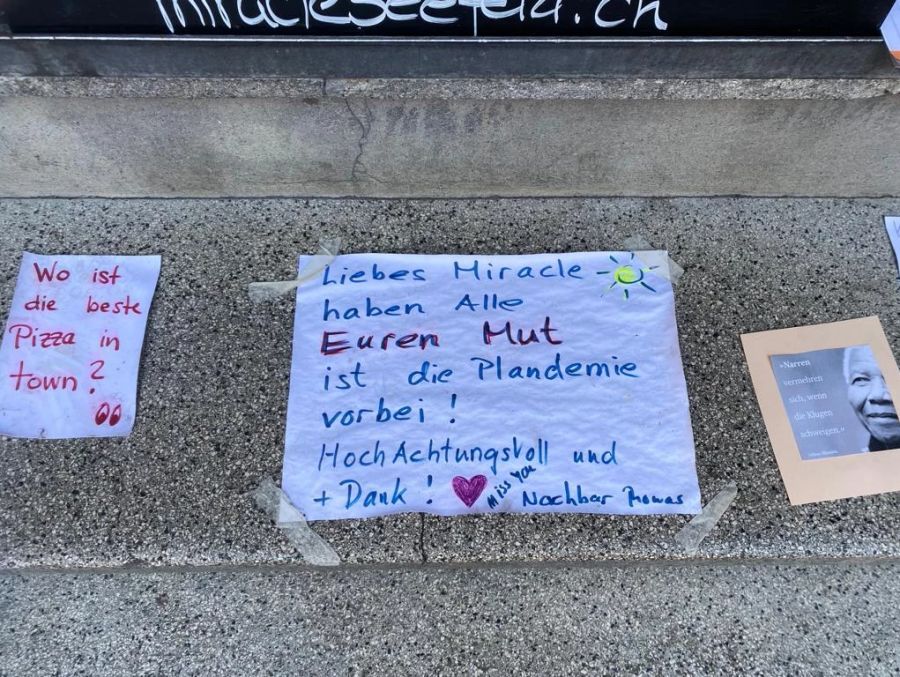 miracleseefeld.ch
Wo ist
die beste
Pizza in
town?
Liebes Miracle
haben Alle
Euren Mut
ist die Plandemie
vorbei!
HochAchtungsvoll und
+ Dank!
Miss You
Nachbar Thomas
»Narren
vermehren
sich, wenn
die Klugen
schweigen.«